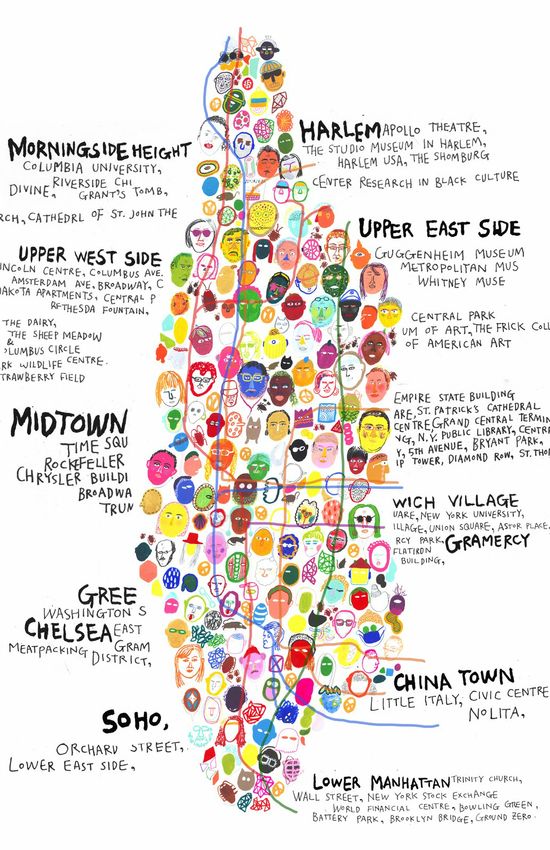 MORNINGSIDE HEIGHT
COLUMBIA UNIVERSITY,
RIVERSIDE CHI
DIVINE, GRANT'S TOMB,
RCH, CATHEDRL OF ST. JOHN THE
HARLEM APOLLO THEATRE,
THE STUDIO MUSEUM IN HARLEM,
HARLEM USA, THE SHOMBURG
CENTER RESEARCH IN BLACK CULTURE
UPPER WEST SIDE
INCOLN CENTRE, COLUMBUS AVE.
AMSTERDAM AVE, BROADWAY, C
DAKOTA APARTMENTS, CENTRAL P
BETHESDA FOUNTAIN,
THE DAIRY,
THE SHEEP MEADOW
&
OLUMBUS CIRCLE
RK WILDLIFE CENTRE.
TRAWBERRY FIELD
UPPER EAST SIDE
GUGGENHEIM MUSEUM
METROPOLITAN MUS
WHITNEY MUSE
CENTRAL PARK
UM OF ART, THE FRICK COLL
OF AMERICAN ART
MIDTOWN
TIME SQU
ROCKEFELLER
CHRYSLER BUILDI
BROADWA
TRUN
EMPIRE STATE BUILDING
ARE, ST. PATRICK'S CATHEDRAL
CENTRE, GRAND CENTRAL TERMIN
NG, N.Y. PUBLIC LIBRARY, CENTRE
Y, 5TH AVENUE, BRYANT PARK,
IP TOWER, DIAMOND ROW, ST. THO
WICH VILLAGE
UARE, NEW YORK UNIVERSITY,
ILLAGE, UNION SQUARE, ASTOR PLACE,
RCY PARK, GRAMERCY
FLATIRON
BUILDING,
GREE
WASHINGTON S
CHELSEA EAST
MEATPACKING GRAM
DISTRICT,
CHINA TOWN
LITTLE ITALY, CIVIC CENTRE
NOLITA,
SOHO,
ORCHARD STREET,
LOWER EAST SIDE,
LOWER MANHATTAN TRINITY CHURCH,
WALL STREET, NEW YORK STOCK EXCHANGE
WORLD FINANCIAL CENTRE, BOWLING GREEN,
BATTERY PARK, BROOKLYN BRIDGE, GROUND ZERO.